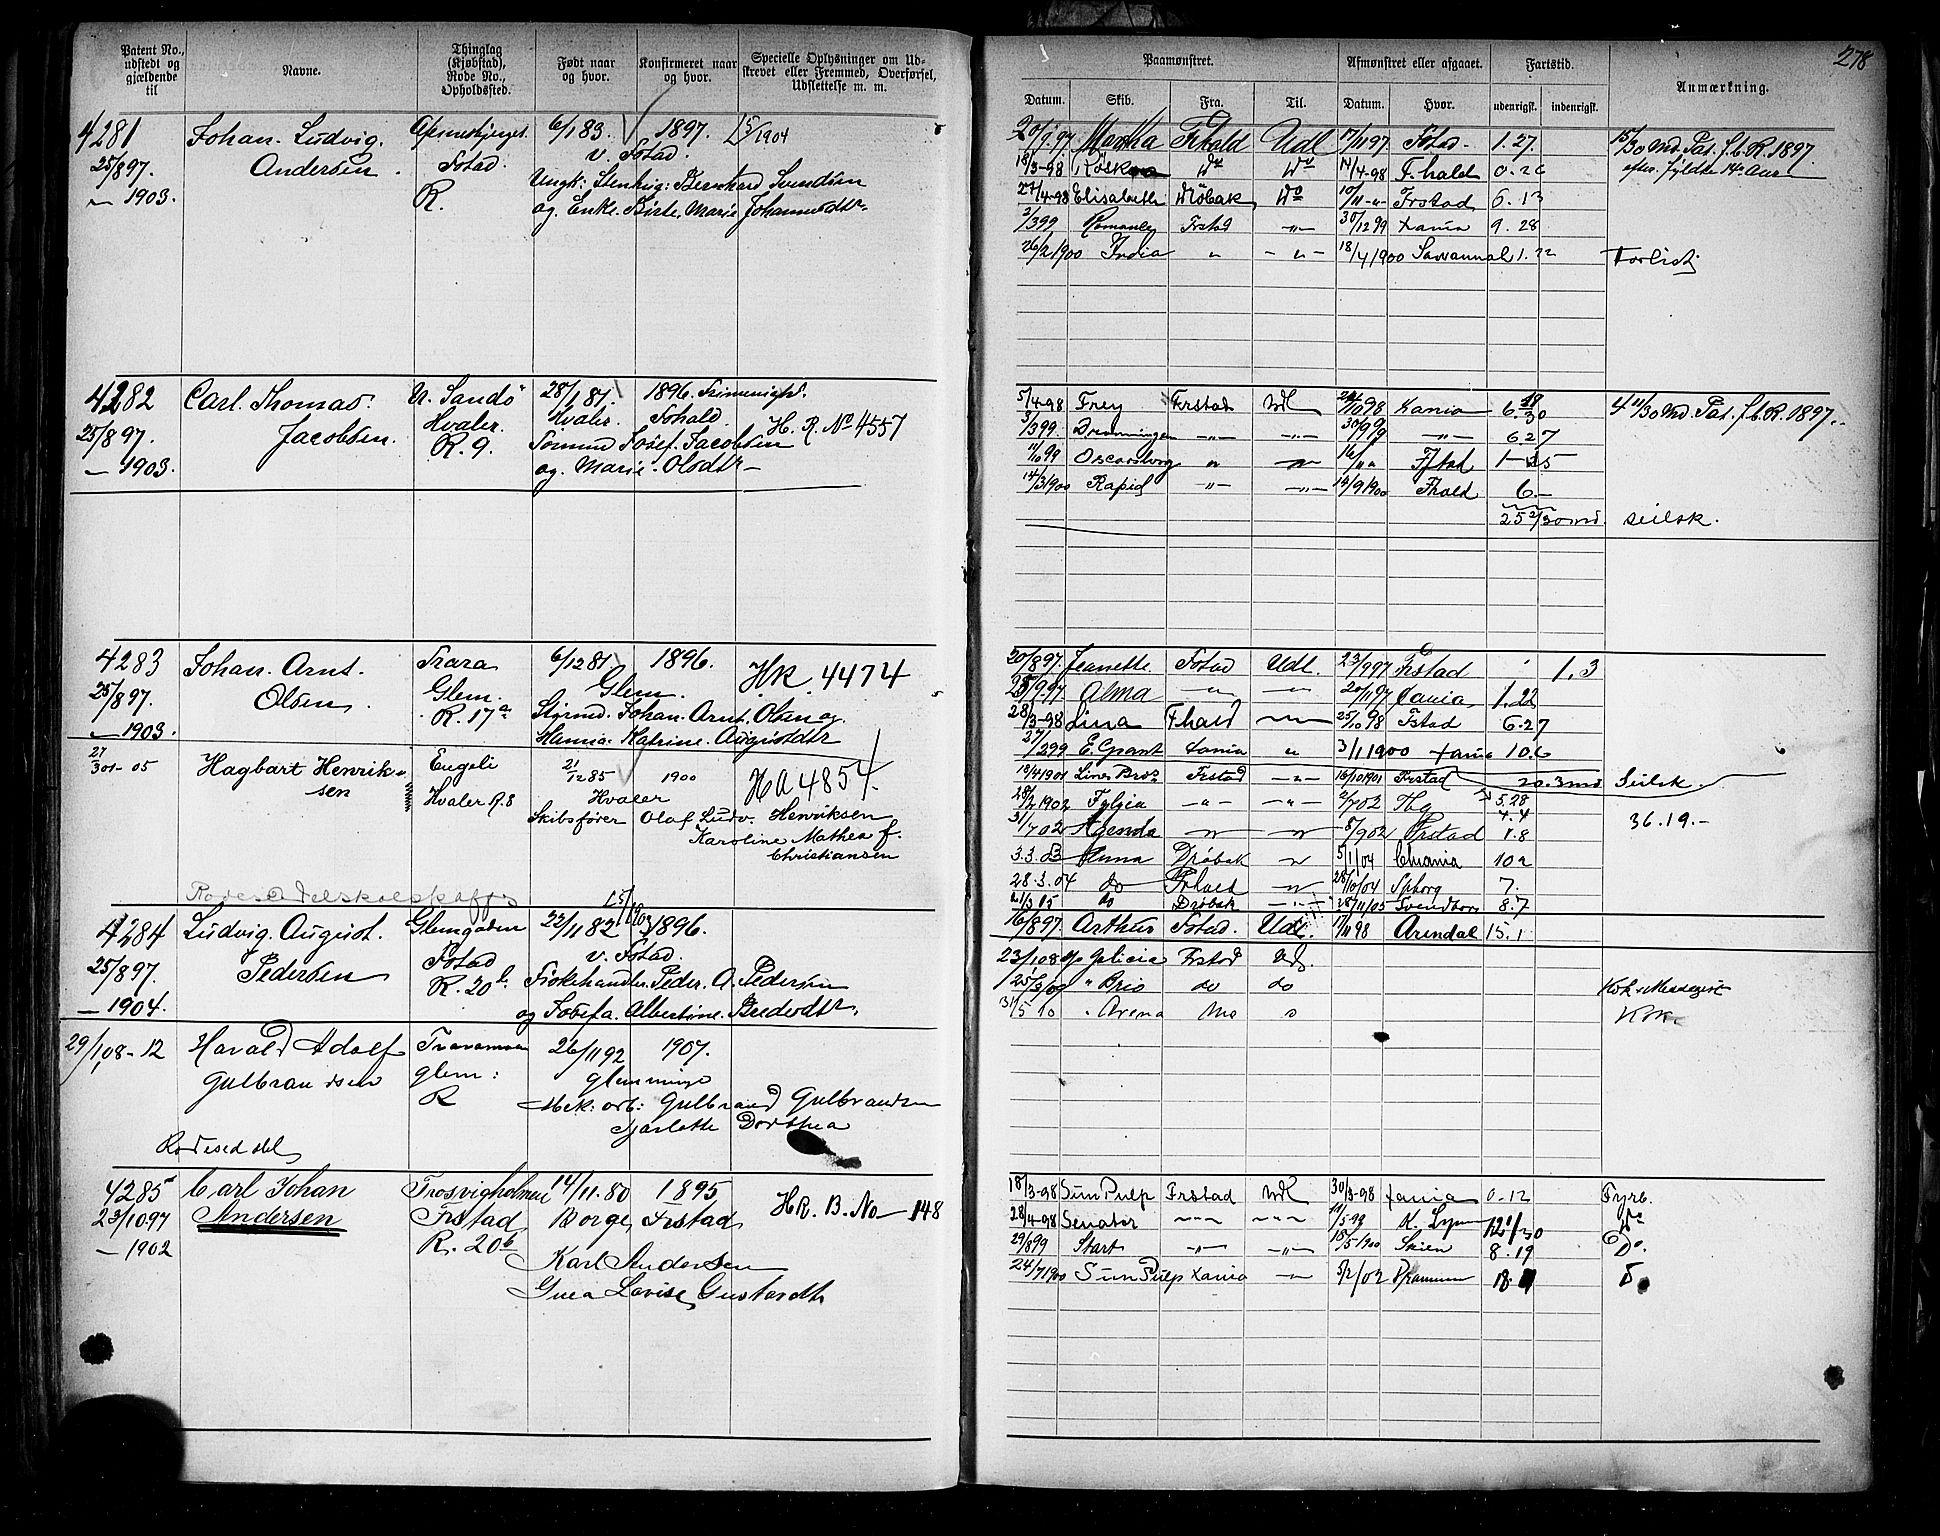 278
Patent No., udstedt og gjældende til
Navne.
Thinglag (Kjøbstad), Rode No., Opholdssted.
Født naar og hvor.
Konfirmeret naar og hvor.
Specielle Oplysninger om Udskrevet eller Fremmed, Overførsel, Udslettelse m. m.
Paamønstret.
Afmønstret eller afgaaet.
Fartstid.
Anmærkning.
Datum. Skib. Fra. Til. Datum. Hvor. udenrigsk. indenrigsk.
4281 Johan. Ludvig. 6/1 83. 1897. 15/3 1904
25/8 97. Andersen Fstad. v. Fstad.
— 1903. R. Ungk: Bernhard Svendsen
og. Enke. Birte. Marie Johannesdtr
20/9 97 Martha Frhald Udl 17/11 97 Fstad. 1.27. 15/30 Md. Pas. f.b.R. 1897.
18/3-98 Do Do 14/4-98 F.hald 0.26 efter fyldte 14 Aar
27/4-98 Elisabeth Drøbak Do 10/11 Frstad 6.13
2/3 99 Romanby Frstad —„— 30/12 99 Xania 9.28
26/2 1900 India „ -„- 18/4 1900 Savannah 1.22 Forlist
4282 Carl. Thomas. N. Sandø 28/1 81. 1896.
25/8 97. Jacobsen. Hvaler. Hvaler. Fshald. H. R. No 4557
— 1903. R. 9. Josef. Jacobsen
og. Marie. Olsdtr —
5/4-98 Frey Frstad Udl 98 Xania 6 28/30 4 11/30 Md. Pas. f.b.R. 1897.
3/3 99. Dronningen —„— —„— 30/9 99 —„— 6 27
11/10 99 Oscarsborg „ 16/11 Fstad 1-15
14/3 1900 Rapid —„— —„— 14/9 1900 Fhald 6—
25 2/30 md. seilsk.
4283 Johan. Arnt. Trara 6/12 81 1896. H.R. 4474
25/8 97. Olsen Glem. Glem.
— 1903. R. 17a Styrmd. Johan. Arnt. Olsen og
Hanna. Katrine. Augustdtr
20/8 97. Jeanette. Fstad Udl. 23/9 97 Frstad 1,3
25/9 97 Alma —„— —„— 20/11 97 Xania 1.22
28/3-98 Lina Fhald 25/10 98 Fstad 6.27
27/2 99 E. Grant Xania „ 3/1 1900 Xania 10.6
Lines Bros Frstad —„— 16/10 1901 Frstad 20.3 md Seilsk.
27/3 01-05 Hagbart Henriksen Engeli 21/12 85 1900 HA 4854.
Hvaler R. 8 Hvaler
Skibsfører Olaf Ludv. Henriksen
Karoline Mathea f. Christiansen
28/2 1902 Fylgia —„— —„— 2/7 02 Hg 5.28
4.4
31/7 02 Agenda 8/9 02 Frstad 1.8 36.19.—
3.3.03 Anna Drøbak 5/11 04 Chrania 10 2
28.3.04 do Frhald 28/10 04 Spborg 7.
21/3 05 do Drøbak —„— 28/11 05 Svendborg 8.7
4284 Ludvig. August. Glemgaden 22/11 82 1896.
25/8 97. Pedersen Fstad v. Fstad.
— 1904. R. 20b Fiskehandler. Peder. A. Pedersen
og Josefa. Albertine.
16/8 97 Arthur Fstad. Udl. 98 Arendal 15.1
29/1 08-12 Harald Adolf Gulbrandsen glem: 26/11 92 1907.
R glemminge
Mek: arb: Gulbrand Gulbrandsen
Dorthea
Rodeseddel
23/1 08 Galicia Frstad Udl.
„ Brio do do
31/5 10 „ Arena Mo Kok
4285 Carl Johan Trosvigholmen 14/11.80 1895 HR. B. No 148
23/10 97 Andersen Frstad Borge, Frstad
— 1902 R. 20b Karl Andersen
Lovise Gustavdtr
18/3-98 Sun Pulp Frstad Udl 30/3-98 Xania 0-12 Fyrb.
28/4-98 Senator —„— —„— K. Lynn Do
29/8 99 Start —„— —„— 15/5 1900 Skien 8.19 Do.
24/7 1900 Sun Pulp Xania —„— 5/2 02 Drammen 18